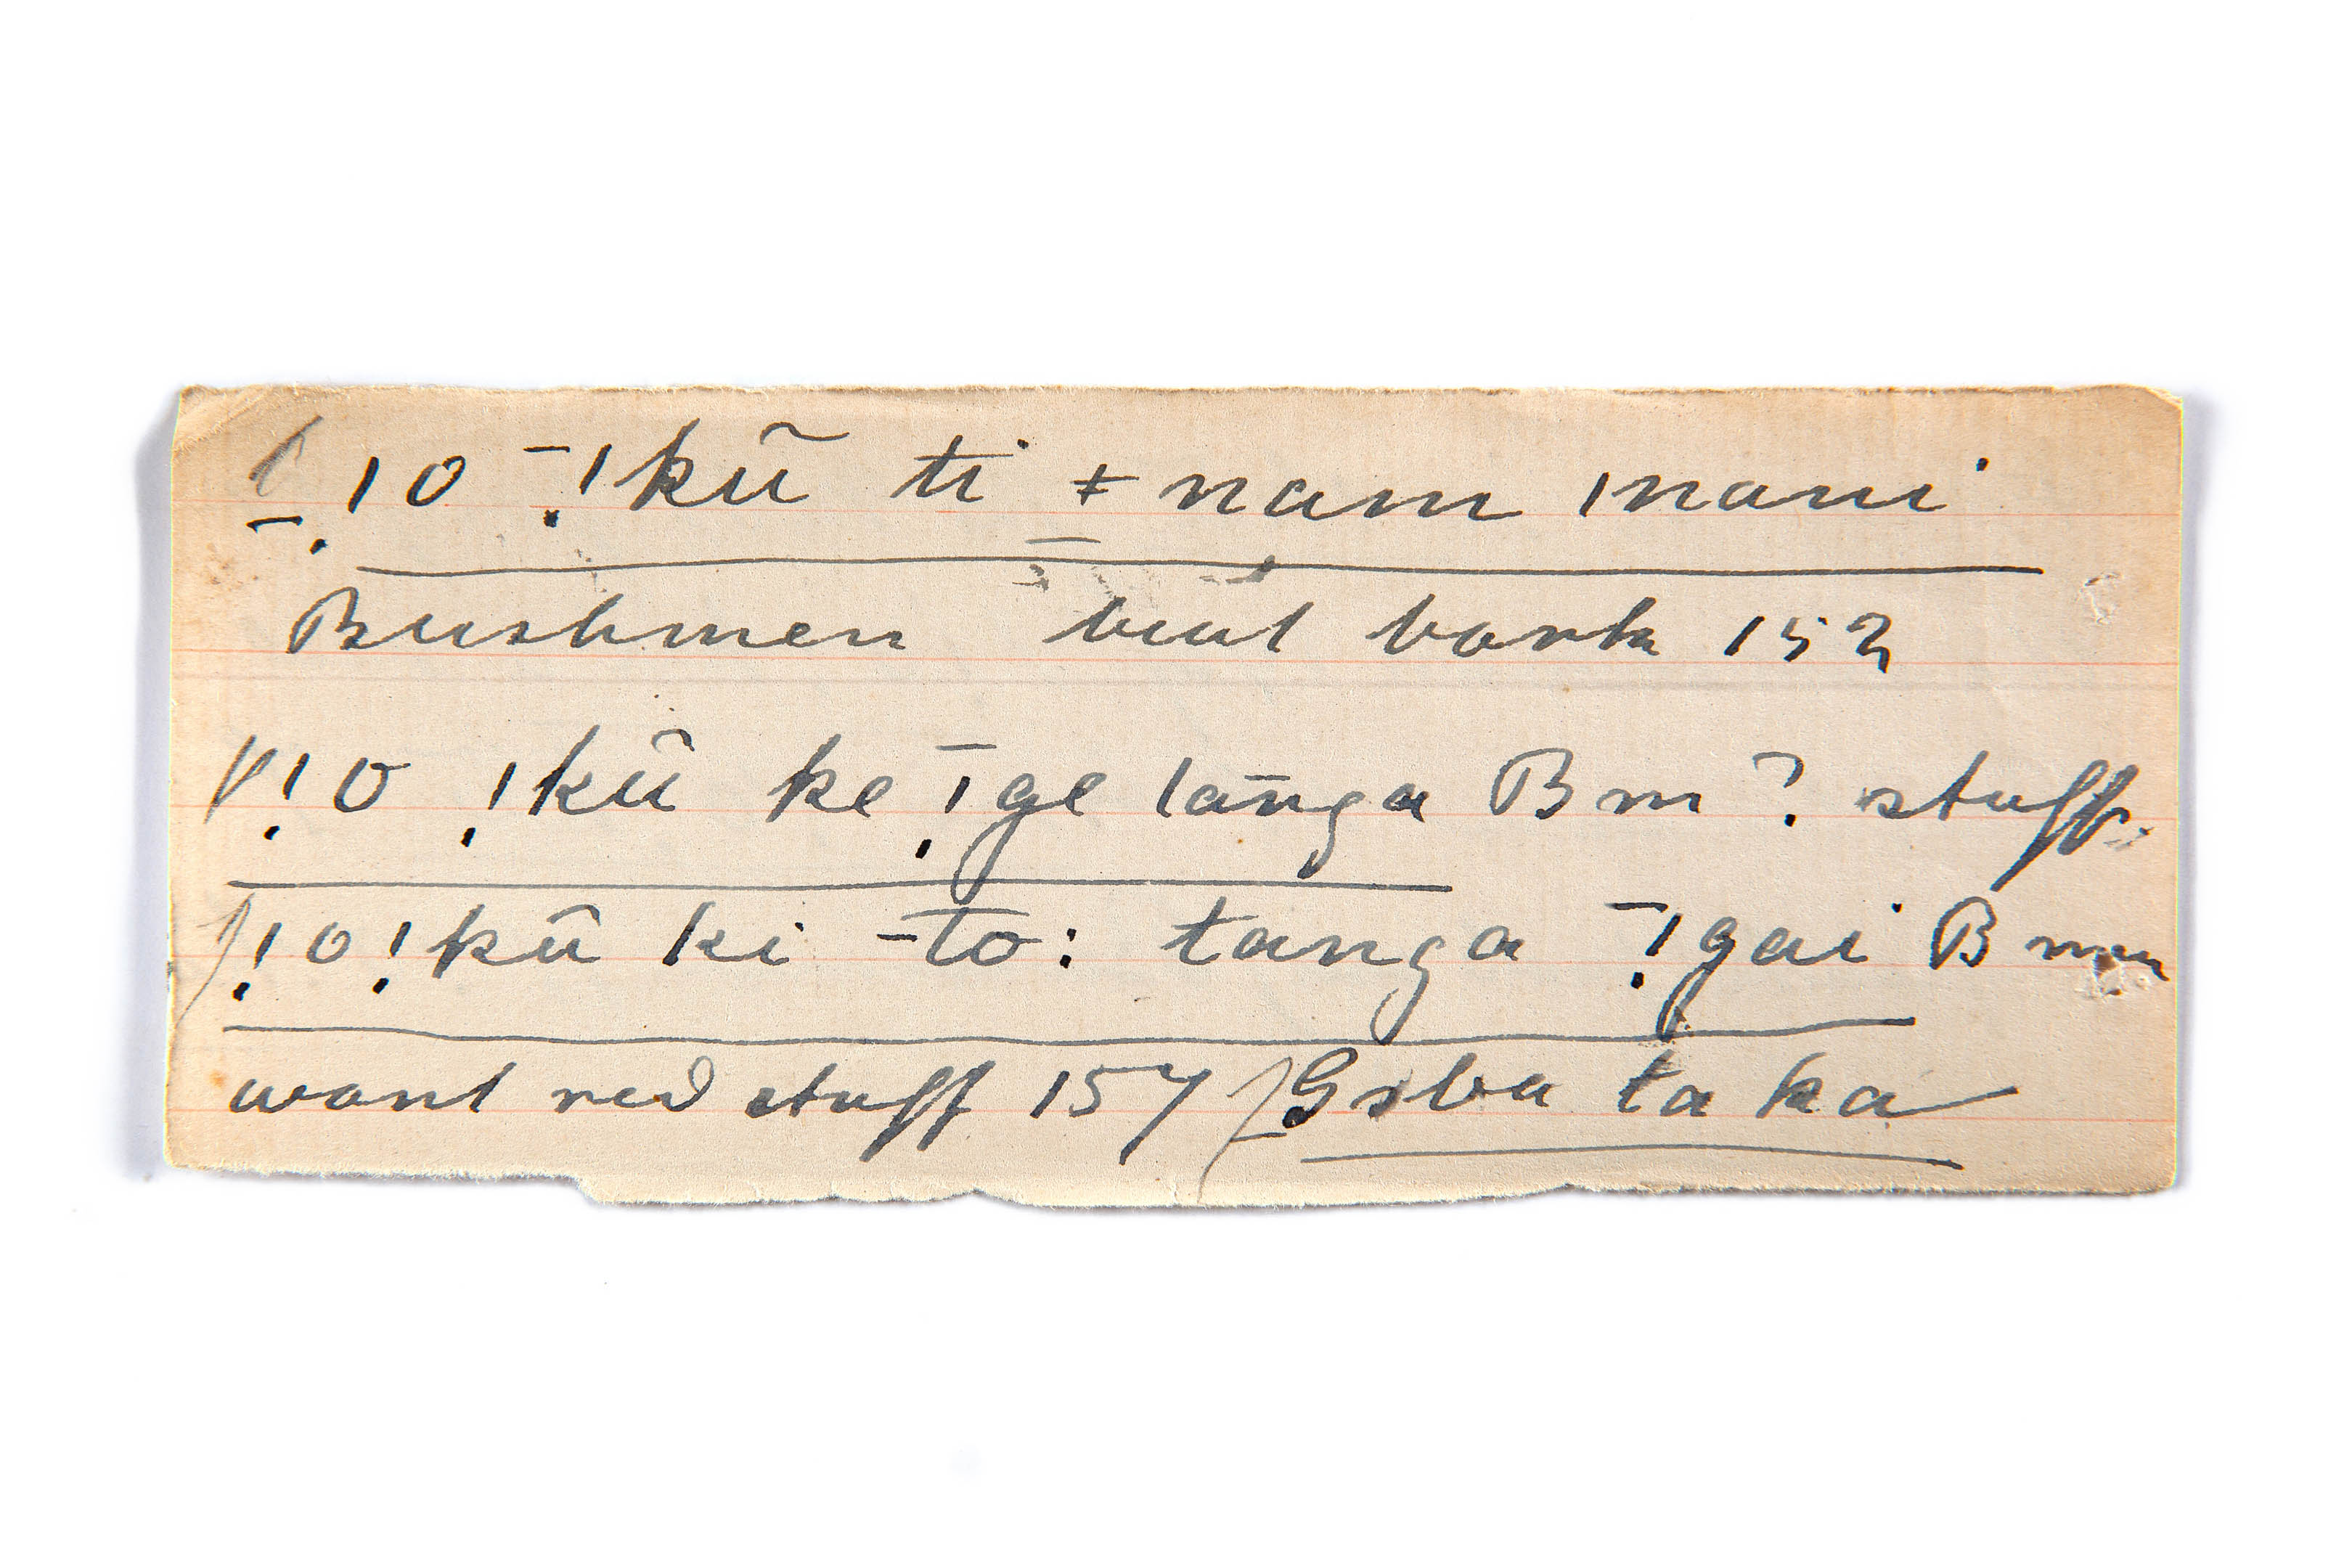 ˍ!o ˉ!kũ ti ǂnam ınani
Bushmen beat bark 152
!o !kũ ke ˉ!ge tanga Bm ? stuff.
!o !kũ ki ˉto: tanga ˉ!gai Bmn
want red stuff 157 ta ka